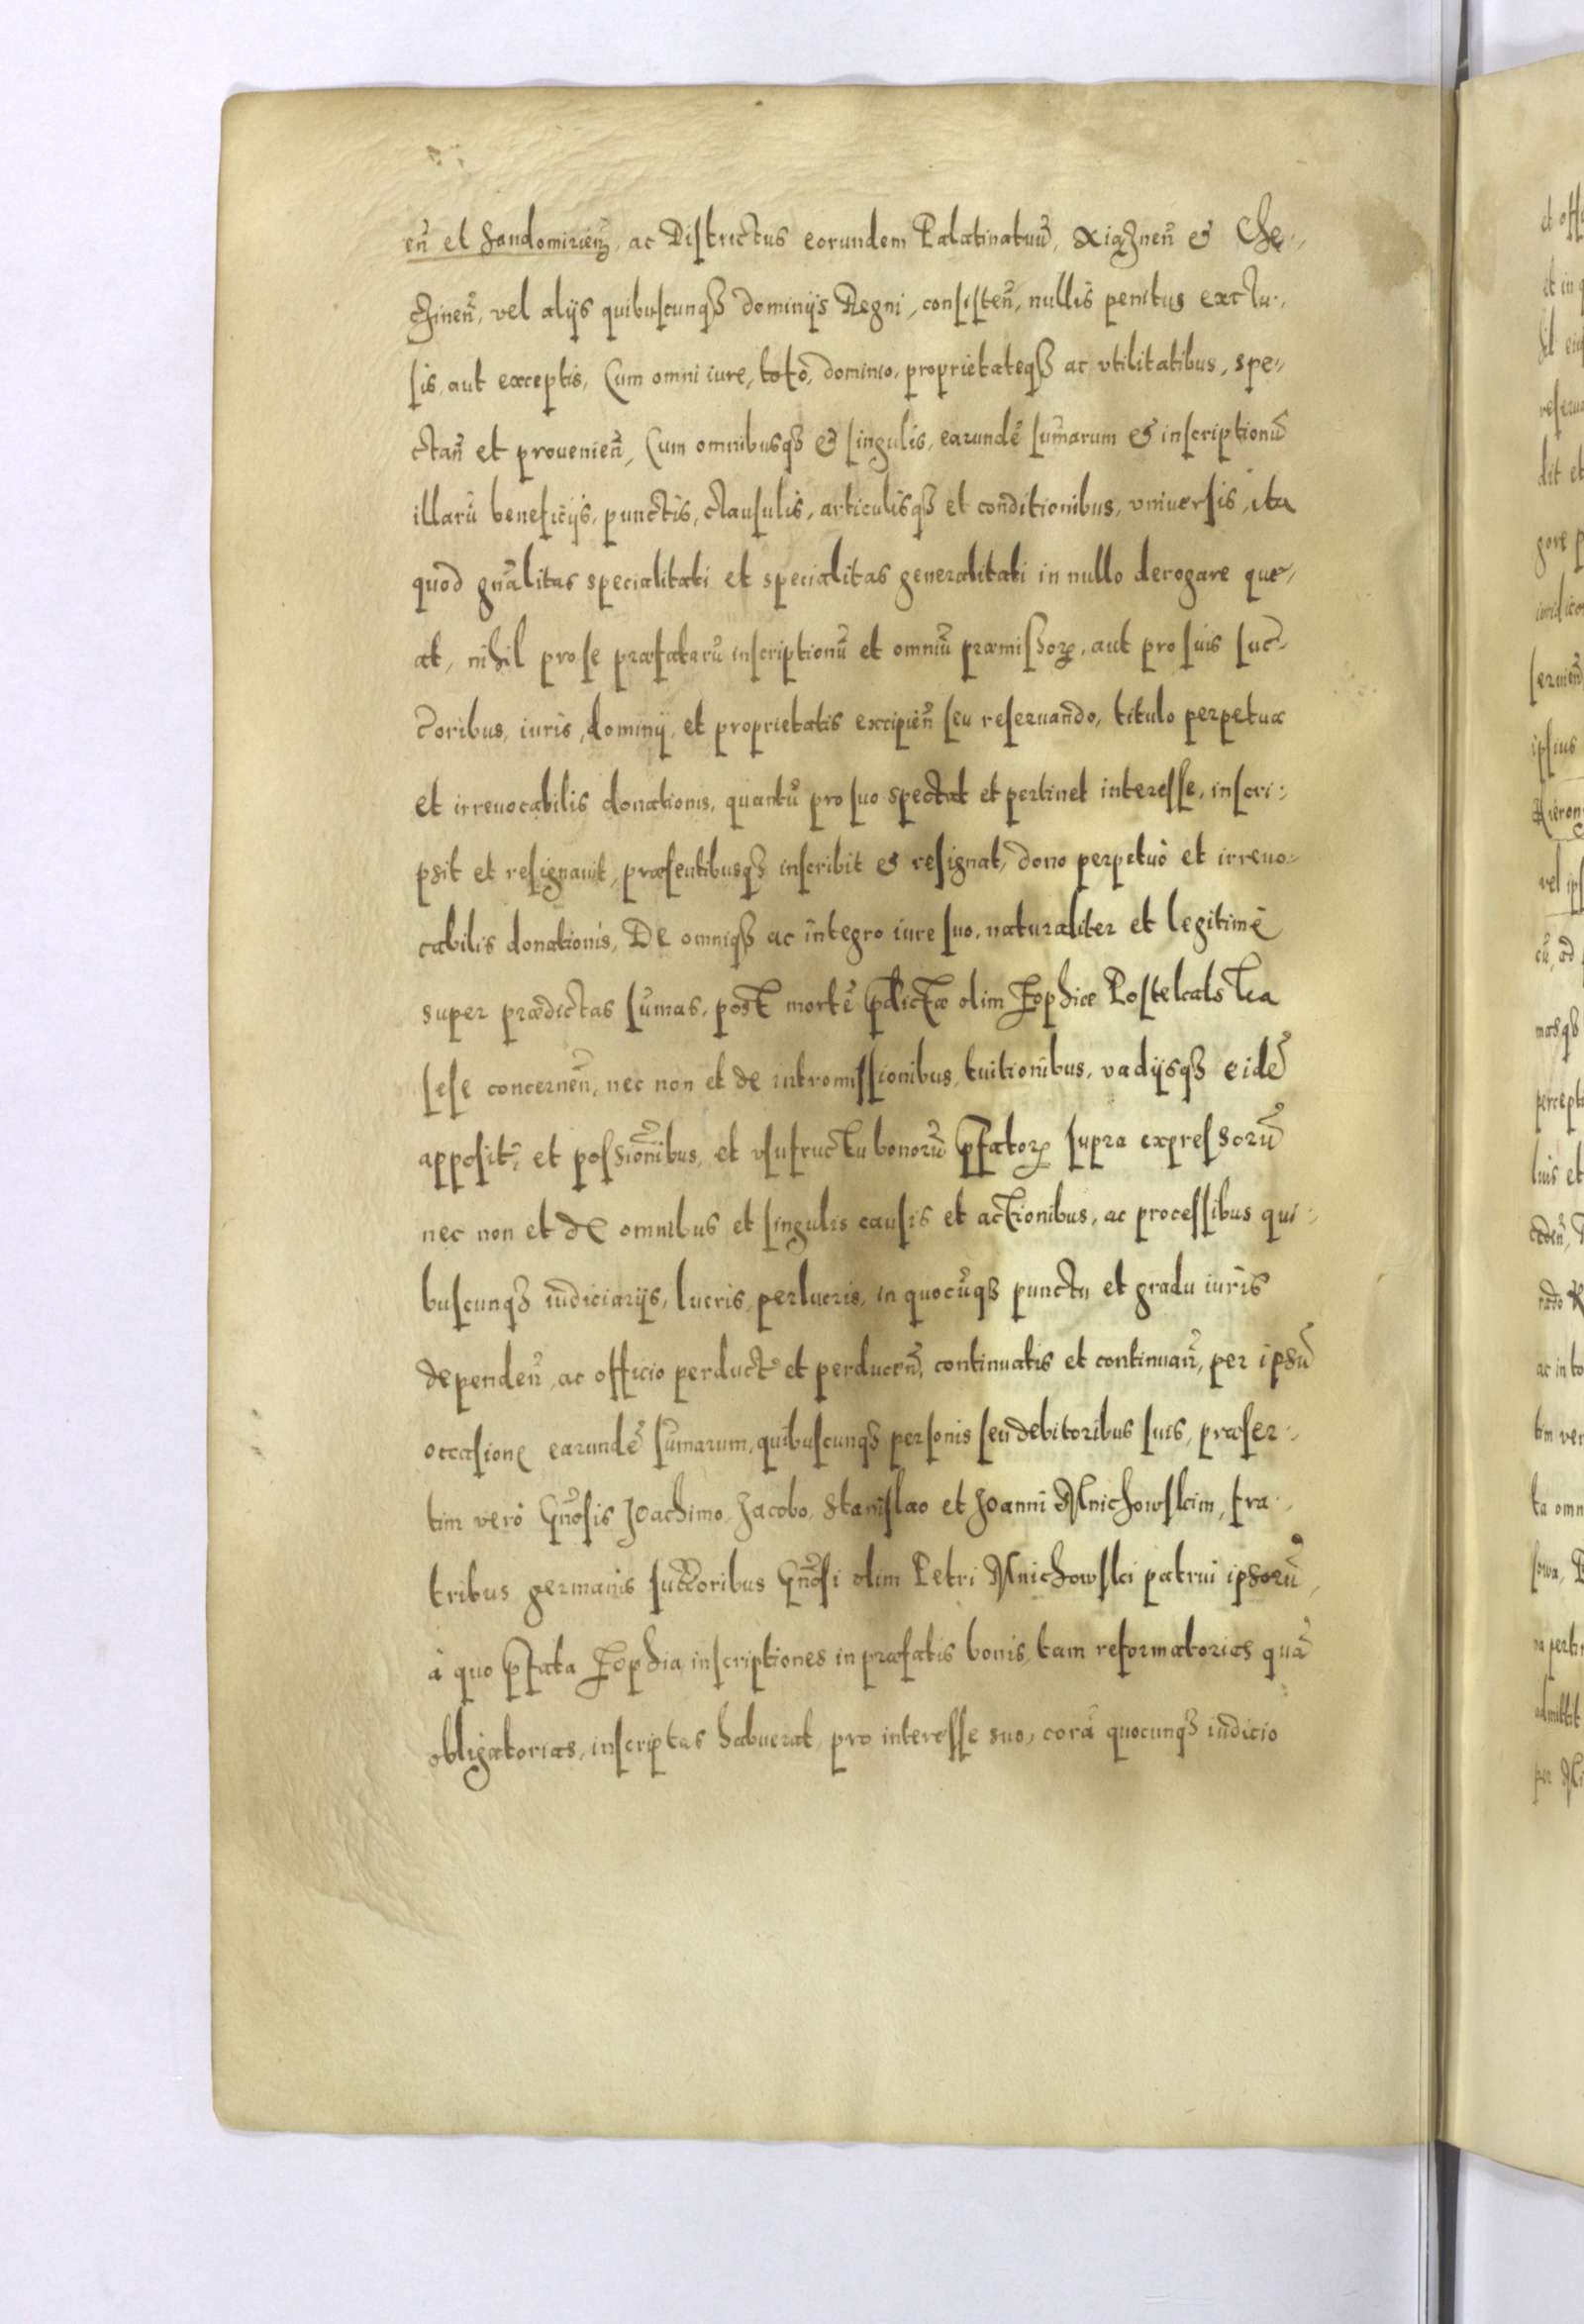 eñ et Sandomirieñ, ac Districtus eorundem Palatinatuũ, Xiązneñ & Chę-
cineñ, vel alijs quibuscunqꝫ dominijs Regni, consisteñ, nullis penitus exclu-
sis, aut exceptis, Cum omni iure, toto, dominio, proprietateqꝫ ac vtilitatibus, spe-
ctañ et prouenieñ, Cum omnibusqꝫ & singulis, earundẽ sum̃arum & inscriptionũ
illarũ beneficijs, punctis, clausulis, articulisqꝫ et conditionibus, vniuersis, ita
quod gñalitas specialitati et specialitas generalitati in nullo derogare que-
at, nihil pro se præfatarũ inscriptionũ et omniũ præmissoꝝ, aut pro suis suc̃-
c̃oribus, iuris, dominij, et proprietatis excipieñ seu reseruando, titulo perpetuæ
et irreuocabilis donationis, quantũ pro suo spectat et pertinet interesse, inscri:
psit et resignauit, præsentibusqꝫ inscribit & resignat, dono perpetuò et irreuo-
cabilis donationis, De omniqꝫ ac integro iure suo, naturaliter et legitimè
super prædictas sum̃as, post mortẽ p̃dictæ olim Zophiæ Postekalska
sese concerneñ, nec non et de intromissionibus, tuitionibus, vadijsqꝫ eidẽ
apposit̃, et possioñibus, et vsufructu bonorũ p̃fatoꝝ supra expressorũ
nec non et de omnibus et singulis causis et actionibus, ac processibus qui:
buscunqꝫ iudiciarijs, lucris, perlucris, in quocũqꝫ punctu et gradu iuris
dependeñ, ac officio perduct̃ et perduceñ, continuatis et continuañ, per ipsũ
occasione earundẽ sum̃arum, quibuscunqꝫ personis seu debitoribus suis, præser-
tim verò Gñosis Joachimo, Jacobo, Stanislao et Joanni Mnichowskim, fra-
tribus germanis succ̃oribus Gñosi olim Petri Mnichowski patrui ipsorũ,
à quo p̃fata Zophia inscriptiones in præfatis bonis, tam reformatorias quã
obligatorias, inscriptas habuerat, pro interesse suo, corã quocunqꝫ iudicio